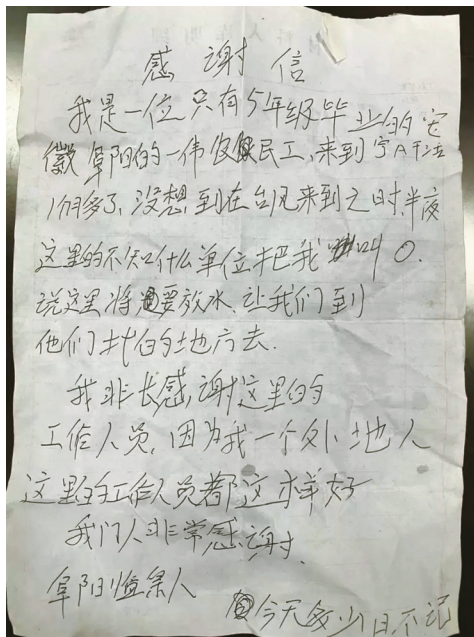 感谢信
我是一位只有5年级毕业的安
徽阜阳的一位农民工，来到宁A干活
1个月多了，没想到在台风来到之时，半夜
这里的不知什么单位把我叫O.
说这里将要放水，让我们到
他们找的地方去.
我非长感谢这里的
工作人员，因为我一个外地人
这里的工作人员都这样好
我们人非常感谢.
阜阳临泉人
今天多少日不记